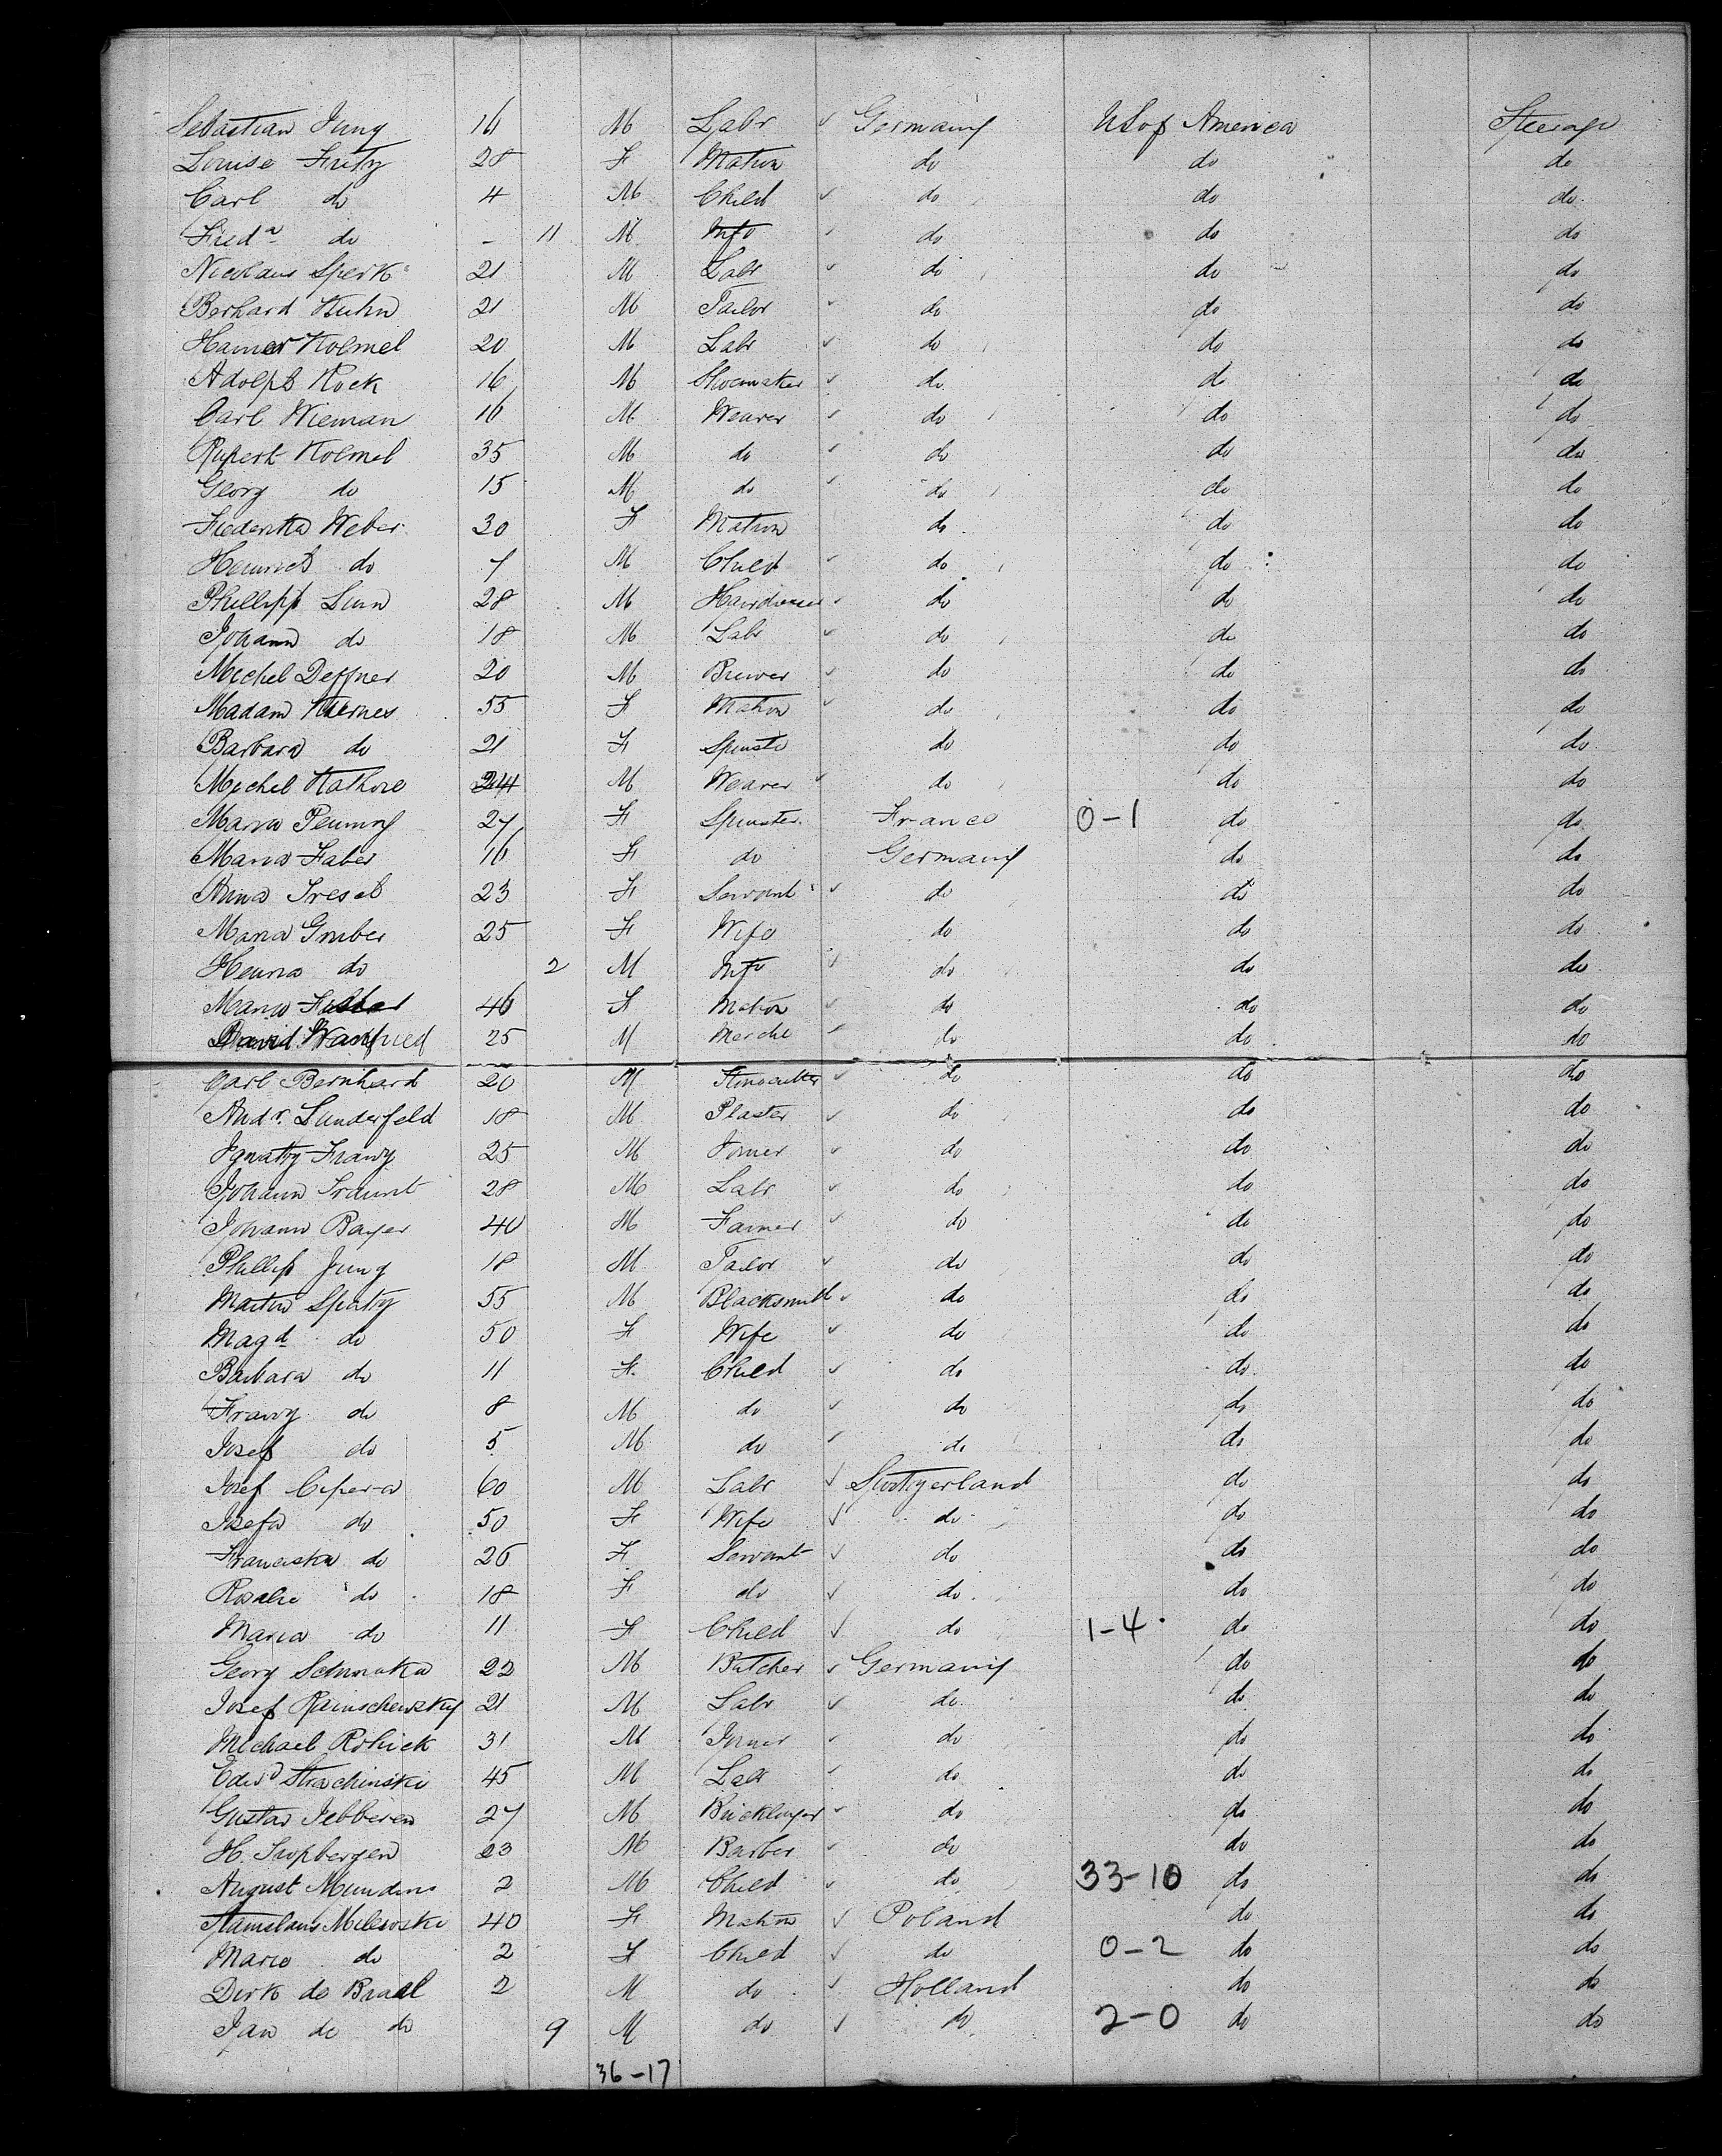 Sebastian Jung 16 M Labr ✓ Germany US of America Steerage
Louise Fritz 28 F Matron do do do
Carl do 4 M Child ✓ do do do
Fredr do - 11 M Inft ✓ do do do
Nicolaus Sperk 21 M Labr ✓ do do do
Berhard Kuhn 21 M Tailor ✓ do do do
Kolmel 20 M Labr ✓ do do do
Adolph Kock 16 M Shoemaker ✓ do do do
Carl Wieman 16 M Weaver ✓ do do do
Rupert Kolmel 35 M do ✓ do do do
Georg do 15 M do ✓ do do do
Frederika Weber 30 F Matron do do do
Heinrich do 7 M Child ✓ do do do
Phillipp Linn 28 M Hairdresser ✓ do do do
Johann do 18 M Labr ✓ do do do
Michel Deffner 20 M Brewer ✓ do do do
Madam 55 F Matron ✓ do do do
Barbara do 21 F Spinste do do do
Michel 24 M Weaver ✓ do do do
Maria 27 F Spinster France 0-1 do do
Maria Faber 16 F do Germany do do
Anna 23 F Servant ✓ do do do
Maria Gruber 25 F Wife do do do
do 2 M Inft ✓ do do do
Maria 46 F Matron ✓ do do do
David 25 M Mercht ✓ do do do
Carl Bernhard 20 M Stonecutter ✓ do do do
Andr. Sunderfeld 18 M Plaster ✓ do do do
Ignatz Franz 25 M Joiner ✓ do do do
Johann 28 M Labr ✓ do do do
Johann Bayer 40 M Farmer ✓ do do do
Phillip Jung 18 M Tailor ✓ do do do
Martin Spatz 55 M Blacksmith ✓ do do do
Magd do 50 F Wife ✓ do do do
Barbara do 11 F Child ✓ do do do
Franz do 8 M do ✓ do do do
Josef do 5 M do ✓ do do do
Josef Cipera 60 M Labr ✓ Switzerland do do
Josefa do 50 F Wife ✓ do do do
Franciska do 26 F Servant ✓ do do do
Rosalie do 18 F do ✓ do do do
Maria do 11 F Child ✓ do 1-4 do do
Georg 22 M Butcher ✓ Germany do do
Josef 21 M Labr ✓ do do do
Michael Rohick 31 M Joiner ✓ do do do
Edwd Strachinski 45 M Labr ✓ do do do
Gustav Jebberen 27 M Bricklayer ✓ do do do
H. 23 M Barber ✓ do do do
August 2 M Child ✓ do 33-10 do do
Stanislaus Milewski 40 F Matron ✓ Poland do do
Marie do 2 F Child ✓ do 0-2 do do
Dirk de Braal 2 M do ✓ Holland do do
Jan de do 9 M do ✓ do 2-0 do do
36-17